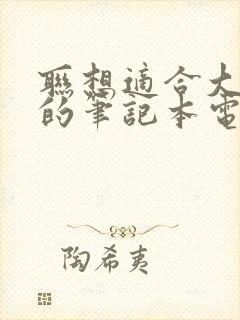 聯想適合大
的筆記本電
陶希夷